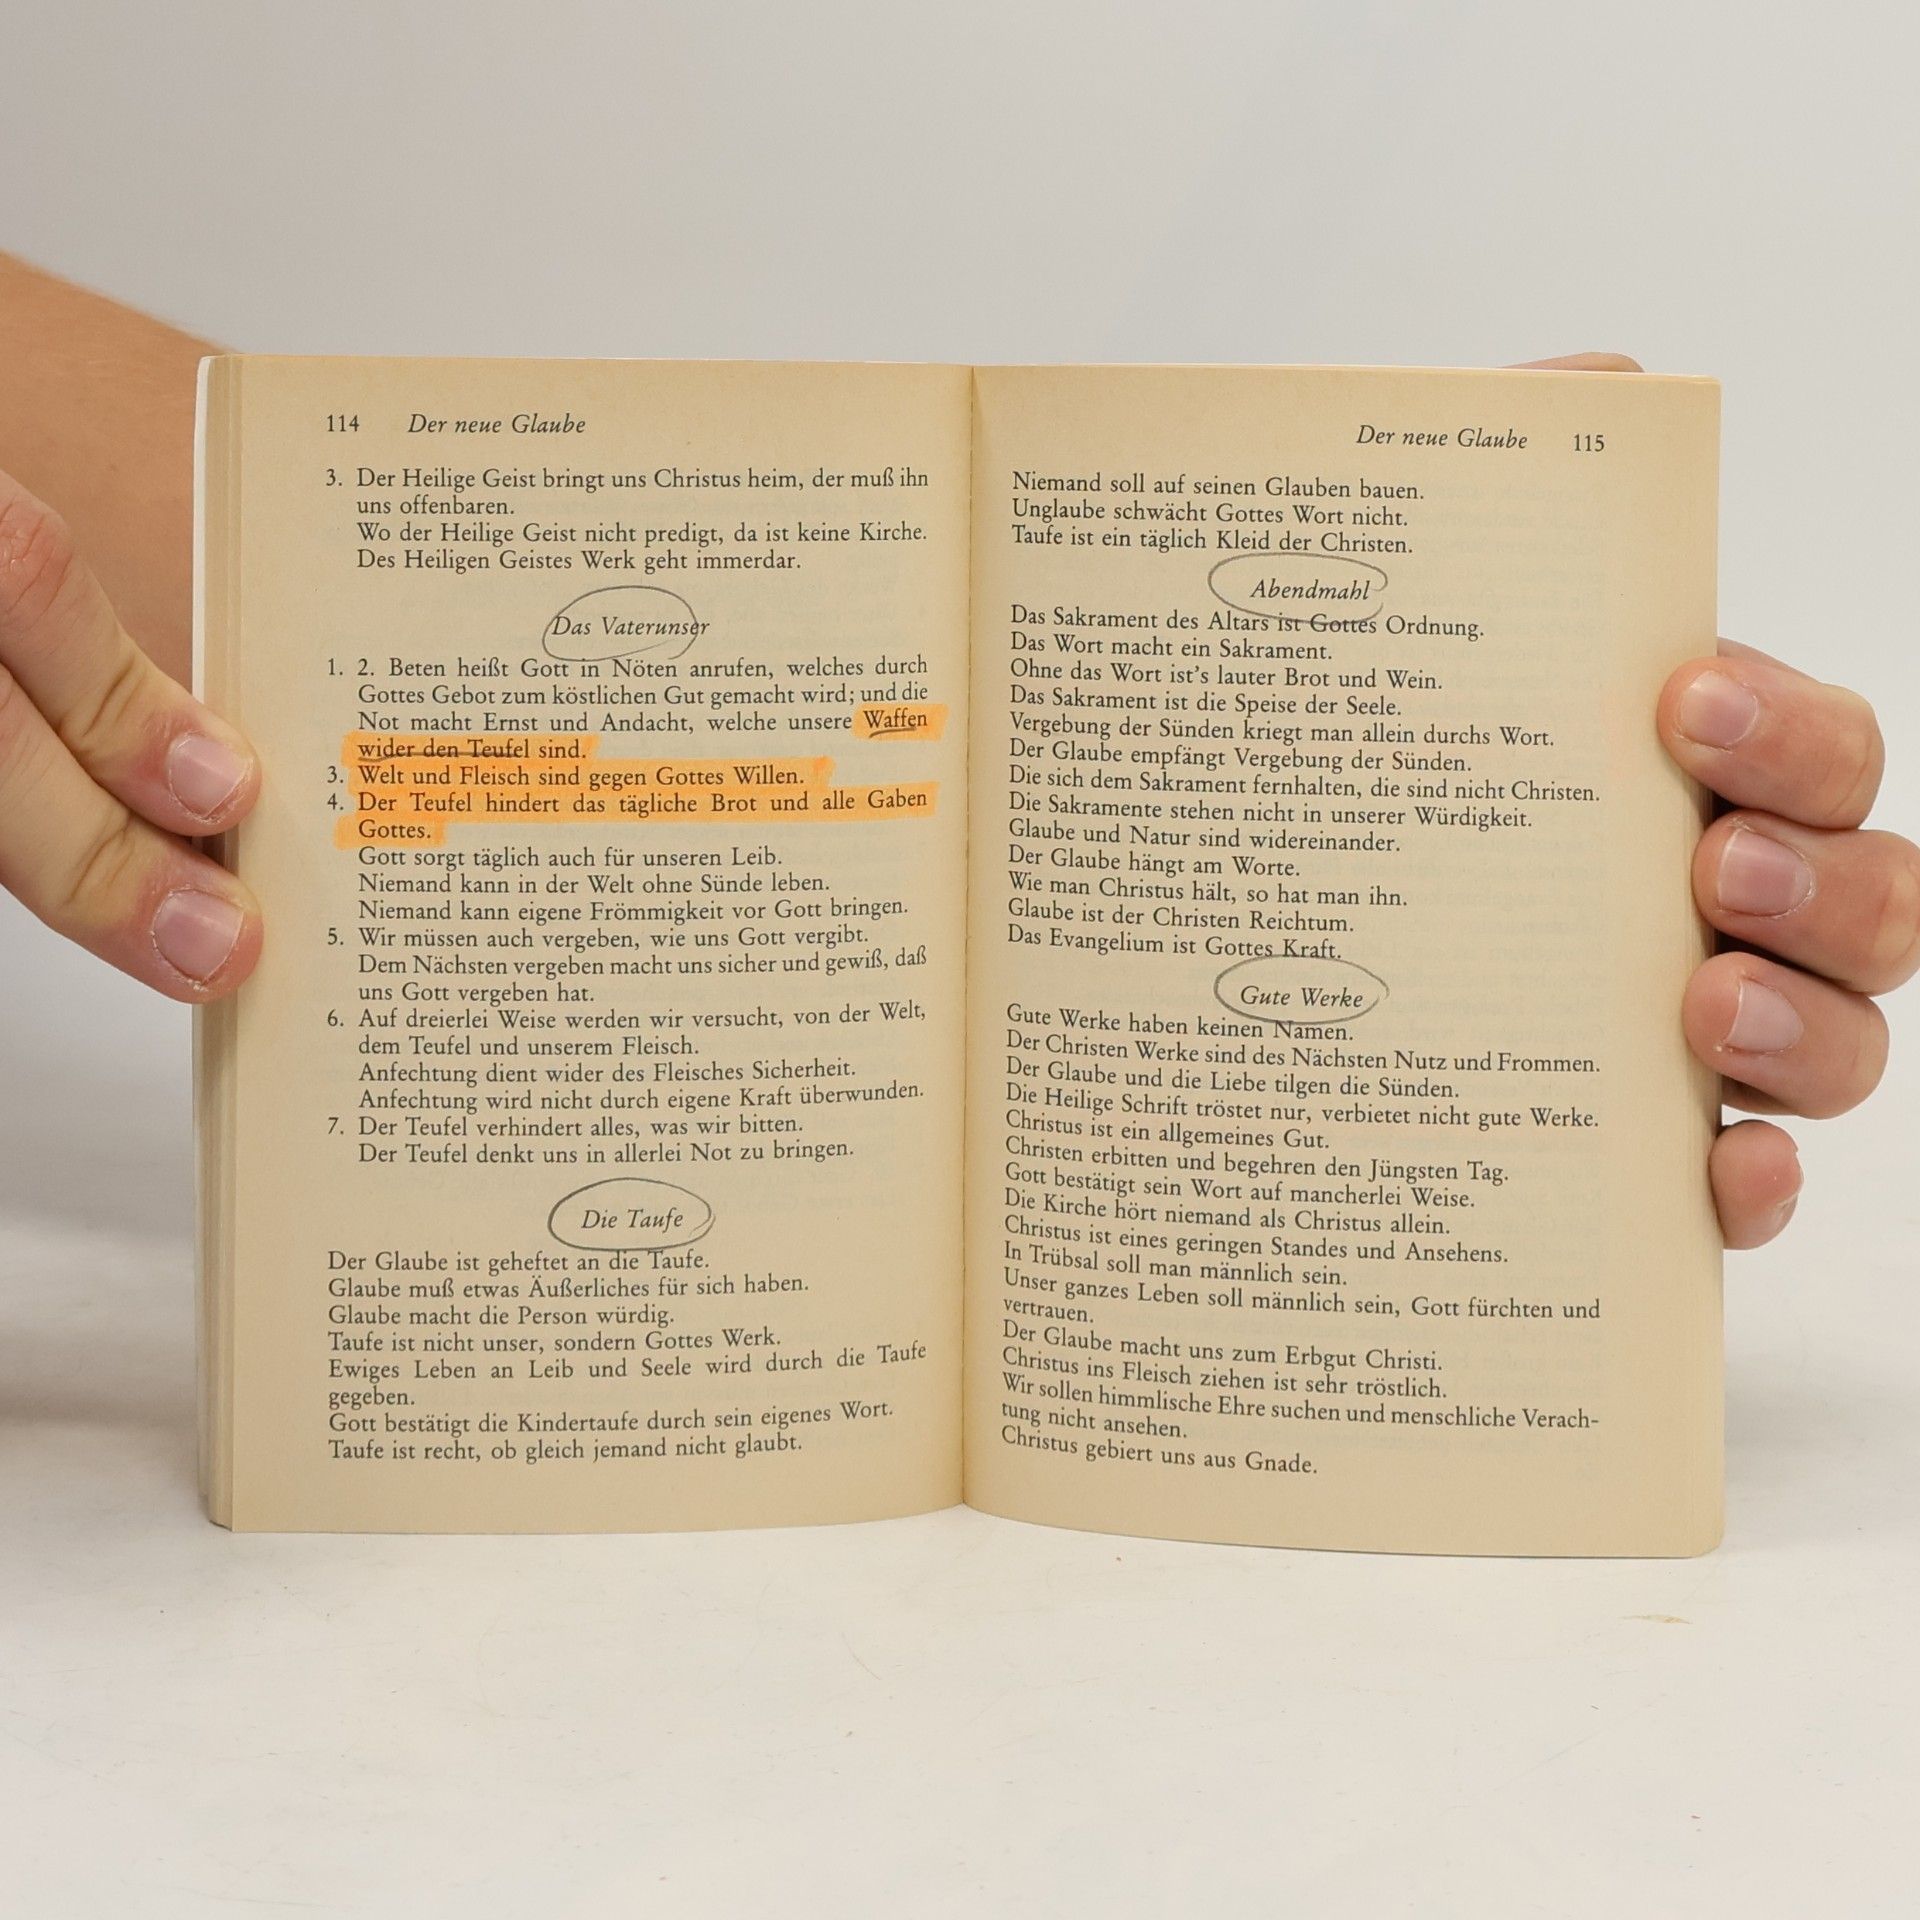 114 Der neue Glaube
3. Der Heilige Geist bringt uns Christus heim, der muß ihn
uns offenbaren.
Wo der Heilige Geist nicht predigt, da ist keine Kirche.
Des Heiligen Geistes Werk geht immerdar.
Das Vaterunser
1. 2. Beten heißt Gott in Nöten anrufen, welches durch
Gottes Gebot zum köstlichen Gut gemacht wird; und die
Not macht Ernst und Andacht, welche unsere Waffen
wider den Teufel sind.
3. Welt und Fleisch sind gegen Gottes Willen.
4. Der Teufel hindert das tägliche Brot und alle Gaben
Gottes.
Gott sorgt täglich auch für unseren Leib.
Niemand kann in der Welt ohne Sünde leben.
Niemand kann eigene Frömmigkeit vor Gott bringen.
5. Wir müssen auch vergeben, wie uns Gott vergibt.
Dem Nächsten vergeben macht uns sicher und gewiß, daß
uns Gott vergeben hat.
6. Auf dreierlei Weise werden wir versucht, von der Welt,
dem Teufel und unserem Fleisch.
Anfechtung dient wider des Fleisches Sicherheit.
Anfechtung wird nicht durch eigene Kraft überwunden.
7. Der Teufel verhindert alles, was wir bitten.
Der Teufel denkt uns in allerlei Not zu bringen.
Die Taufe
Der Glaube ist geheftet an die Taufe.
Glaube muß etwas Äußerliches für sich haben.
Glaube macht die Person würdig.
Taufe ist nicht unser, sondern Gottes Werk.
Ewiges Leben an Leib und Seele wird durch die Taufe
gegeben.
Gott bestätigt die Kindertaufe durch sein eigenes Wort.
Taufe ist recht, ob gleich jemand nicht glaubt.
Der neue Glaube 115
Niemand soll auf seinen Glauben bauen.
Unglaube schwächt Gottes Wort nicht.
Taufe ist ein täglich Kleid der Christen.
Abendmahl
Das Sakrament des Altars ist Gottes Ordnung.
Das Wort macht ein Sakrament.
Ohne das Wort ist's lauter Brot und Wein.
Das Sakrament ist die Speise der Seele.
Vergebung der Sünden kriegt man allein durchs Wort.
Der Glaube empfängt Vergebung der Sünden.
Die sich dem Sakrament fernhalten, die sind nicht Christen.
Die Sakramente stehen nicht in unserer Würdigkeit.
Glaube und Natur sind widereinander.
Der Glaube hängt am Worte.
Wie man Christus hält, so hat man ihn.
Glaube ist der Christen Reichtum.
Das Evangelium ist Gottes Kraft.
Gute Werke
Gute Werke haben keinen Namen.
Der Christen Werke sind des Nächsten Nutz und Frommen.
Der Glaube und die Liebe tilgen die Sünden.
Die Heilige Schrift tröstet nur, verbietet nicht gute Werke.
Christus ist ein allgemeines Gut.
Christen erbitten und begehren den Jüngsten Tag.
Gott bestätigt sein Wort auf mancherlei Weise.
Die Kirche hört niemand als Christus allein.
Christus ist eines geringen Standes und Ansehens.
In Trübsal soll man männlich sein.
Unser ganzes Leben soll männlich sein, Gott fürchten und
vertrauen.
Der Glaube macht uns zum Erbgut Christi.
Christus ins Fleisch ziehen ist sehr tröstlich.
Wir sollen himmlische Ehre suchen und menschliche Verach-
tung nicht ansehen.
Christus gebiert uns aus Gnade.